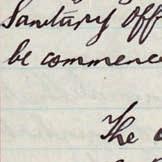 Sanitary Off
be commenc
The